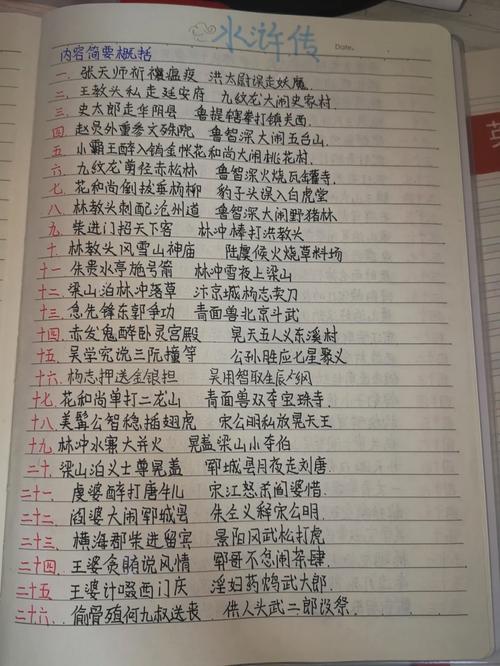 水浒传
Date.
内容简要概括
一、张天师祈禳瘟疫 洪太尉误走妖魔
二、王教头私走延安府 九纹龙大闹史家村
三、史太郎走华阴县 鲁提辖拳打镇关西
四 赵员外重参文殊院 鲁智深大闹五台山
五 小霸王醉入销金帐花和尚大闹桃花村
六、九纹龙剪径赤松林 鲁智深火烧瓦罐寺
七、花和尚倒拔垂杨柳 豹子头误入白虎堂
八、林教头刺配沧州道 鲁智深大闹野猪林
九、柴进门招天下客 林冲棒打洪教头
十、林教头风雪山神庙 陆虞候火烧草料场
十一 朱贵水亭施号箭 林冲雪夜上梁山
十二、梁山泊林冲落草 汴京城杨志卖刀
十三、急先锋东郭争功 青面兽北京斗武
十四、赤发鬼醉卧灵宫殿 晃天五人义东溪村
十五、吴学究说三阮撞等 公孙胜应七星聚义
十六、杨志押送金银担 吴用智取生辰纲
十七、花和尚单打二龙山 青面兽双夺宝珠寺
十八、美髯公智稳插翅虎 宋公明私放晃天王
十九、林冲水寨大并火 晃盖梁山小夺伯
二十、梁山泊义士尊晃盖 郓城县月夜走刘唐
二十一、虔婆醉打唐牛儿 宋江怒杀阎婆惜
二十二、阎婆大闹郓城县 朱仝义释宋公明
二十三、横海郡柴进留宾 景阳冈武松打虎
二十四、王婆贪贿说风情 郓哥不忿闹茶肆
二十五 王婆计啜西门庆 淫妇药鸩武大郎
二十六、偷骨殖何九叔送丧 供人头武二郎设祭
英